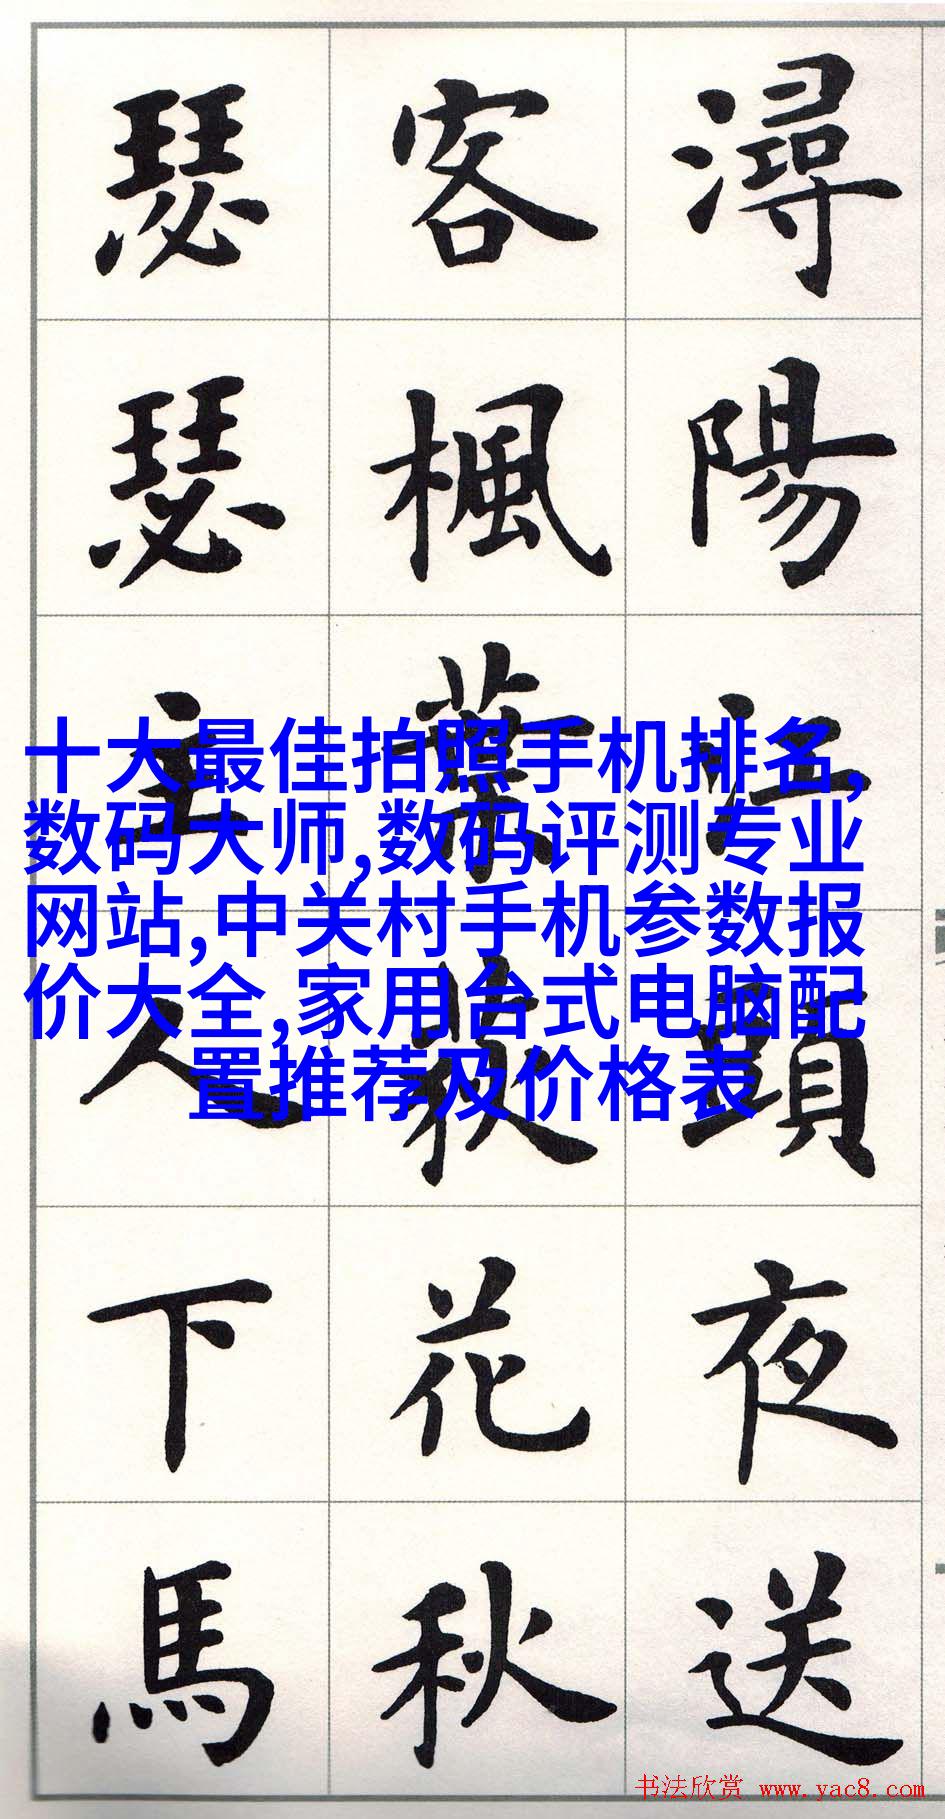 潯陽江頭夜送
客楓葉荻花秋
瑟瑟主人下馬
十大最佳拍照手机排名,
数码大师,数码评测专业
网站,中关村手机参数报
价大全,家用台式电脑配
置推荐及价格表
书法欣赏 www.yac8.com